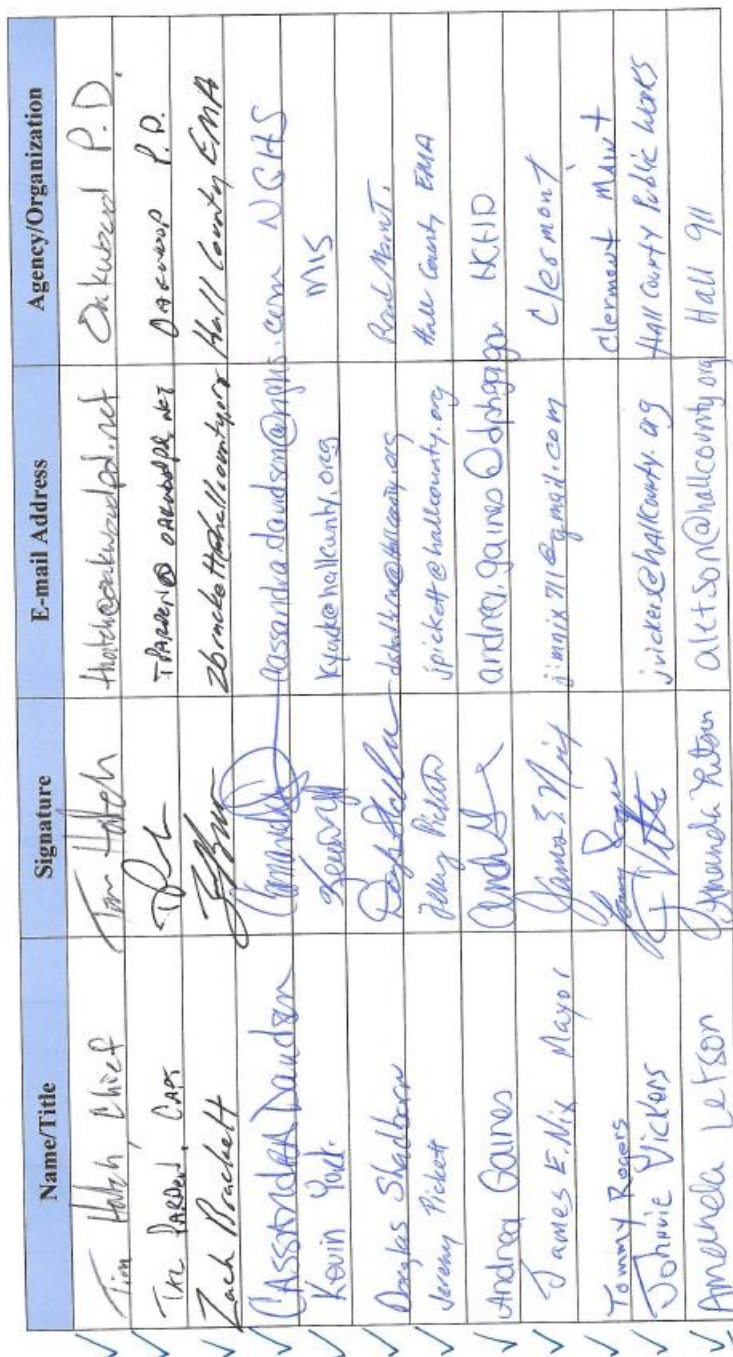 Name/Title Signature E-mail Address Agency/Organization
Tim Hatch, Chief Tim Hatch thatch@oakwoodpd.net Oakwood P.D.
PARDEN, CAPT TPARDEN@OAKWOODPD.NET OAKWOOD P.D.
Zach Brackett zbrackett@hallcounty.org Hall County EMA
CASSANDRA Davidson cassandra.davidson@nghs.com NGHS
Kevin York kyork@hallcounty.org MIS
Douglas Shadburn dshadburn@hallcounty.org Road Maint.
Jeremy Pickett Jeremy Pickett jpickett@hallcounty.org Hall County EMA
Andrea Gaines andrea.gaines@dph.ga.gov HCHD
James E. Nix Mayor James E Nix jimnix711@gmail.com Clermont
Tommy Rogers Clermont Maint
Johnnie Vickers jvickers@hallcounty.org Hall County Public Works
Amanda Letson Amanda Letson aletson@hallcounty.org Hall 911